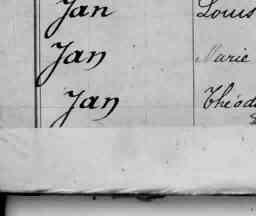 Jan Louis
Jan Marie
Jan